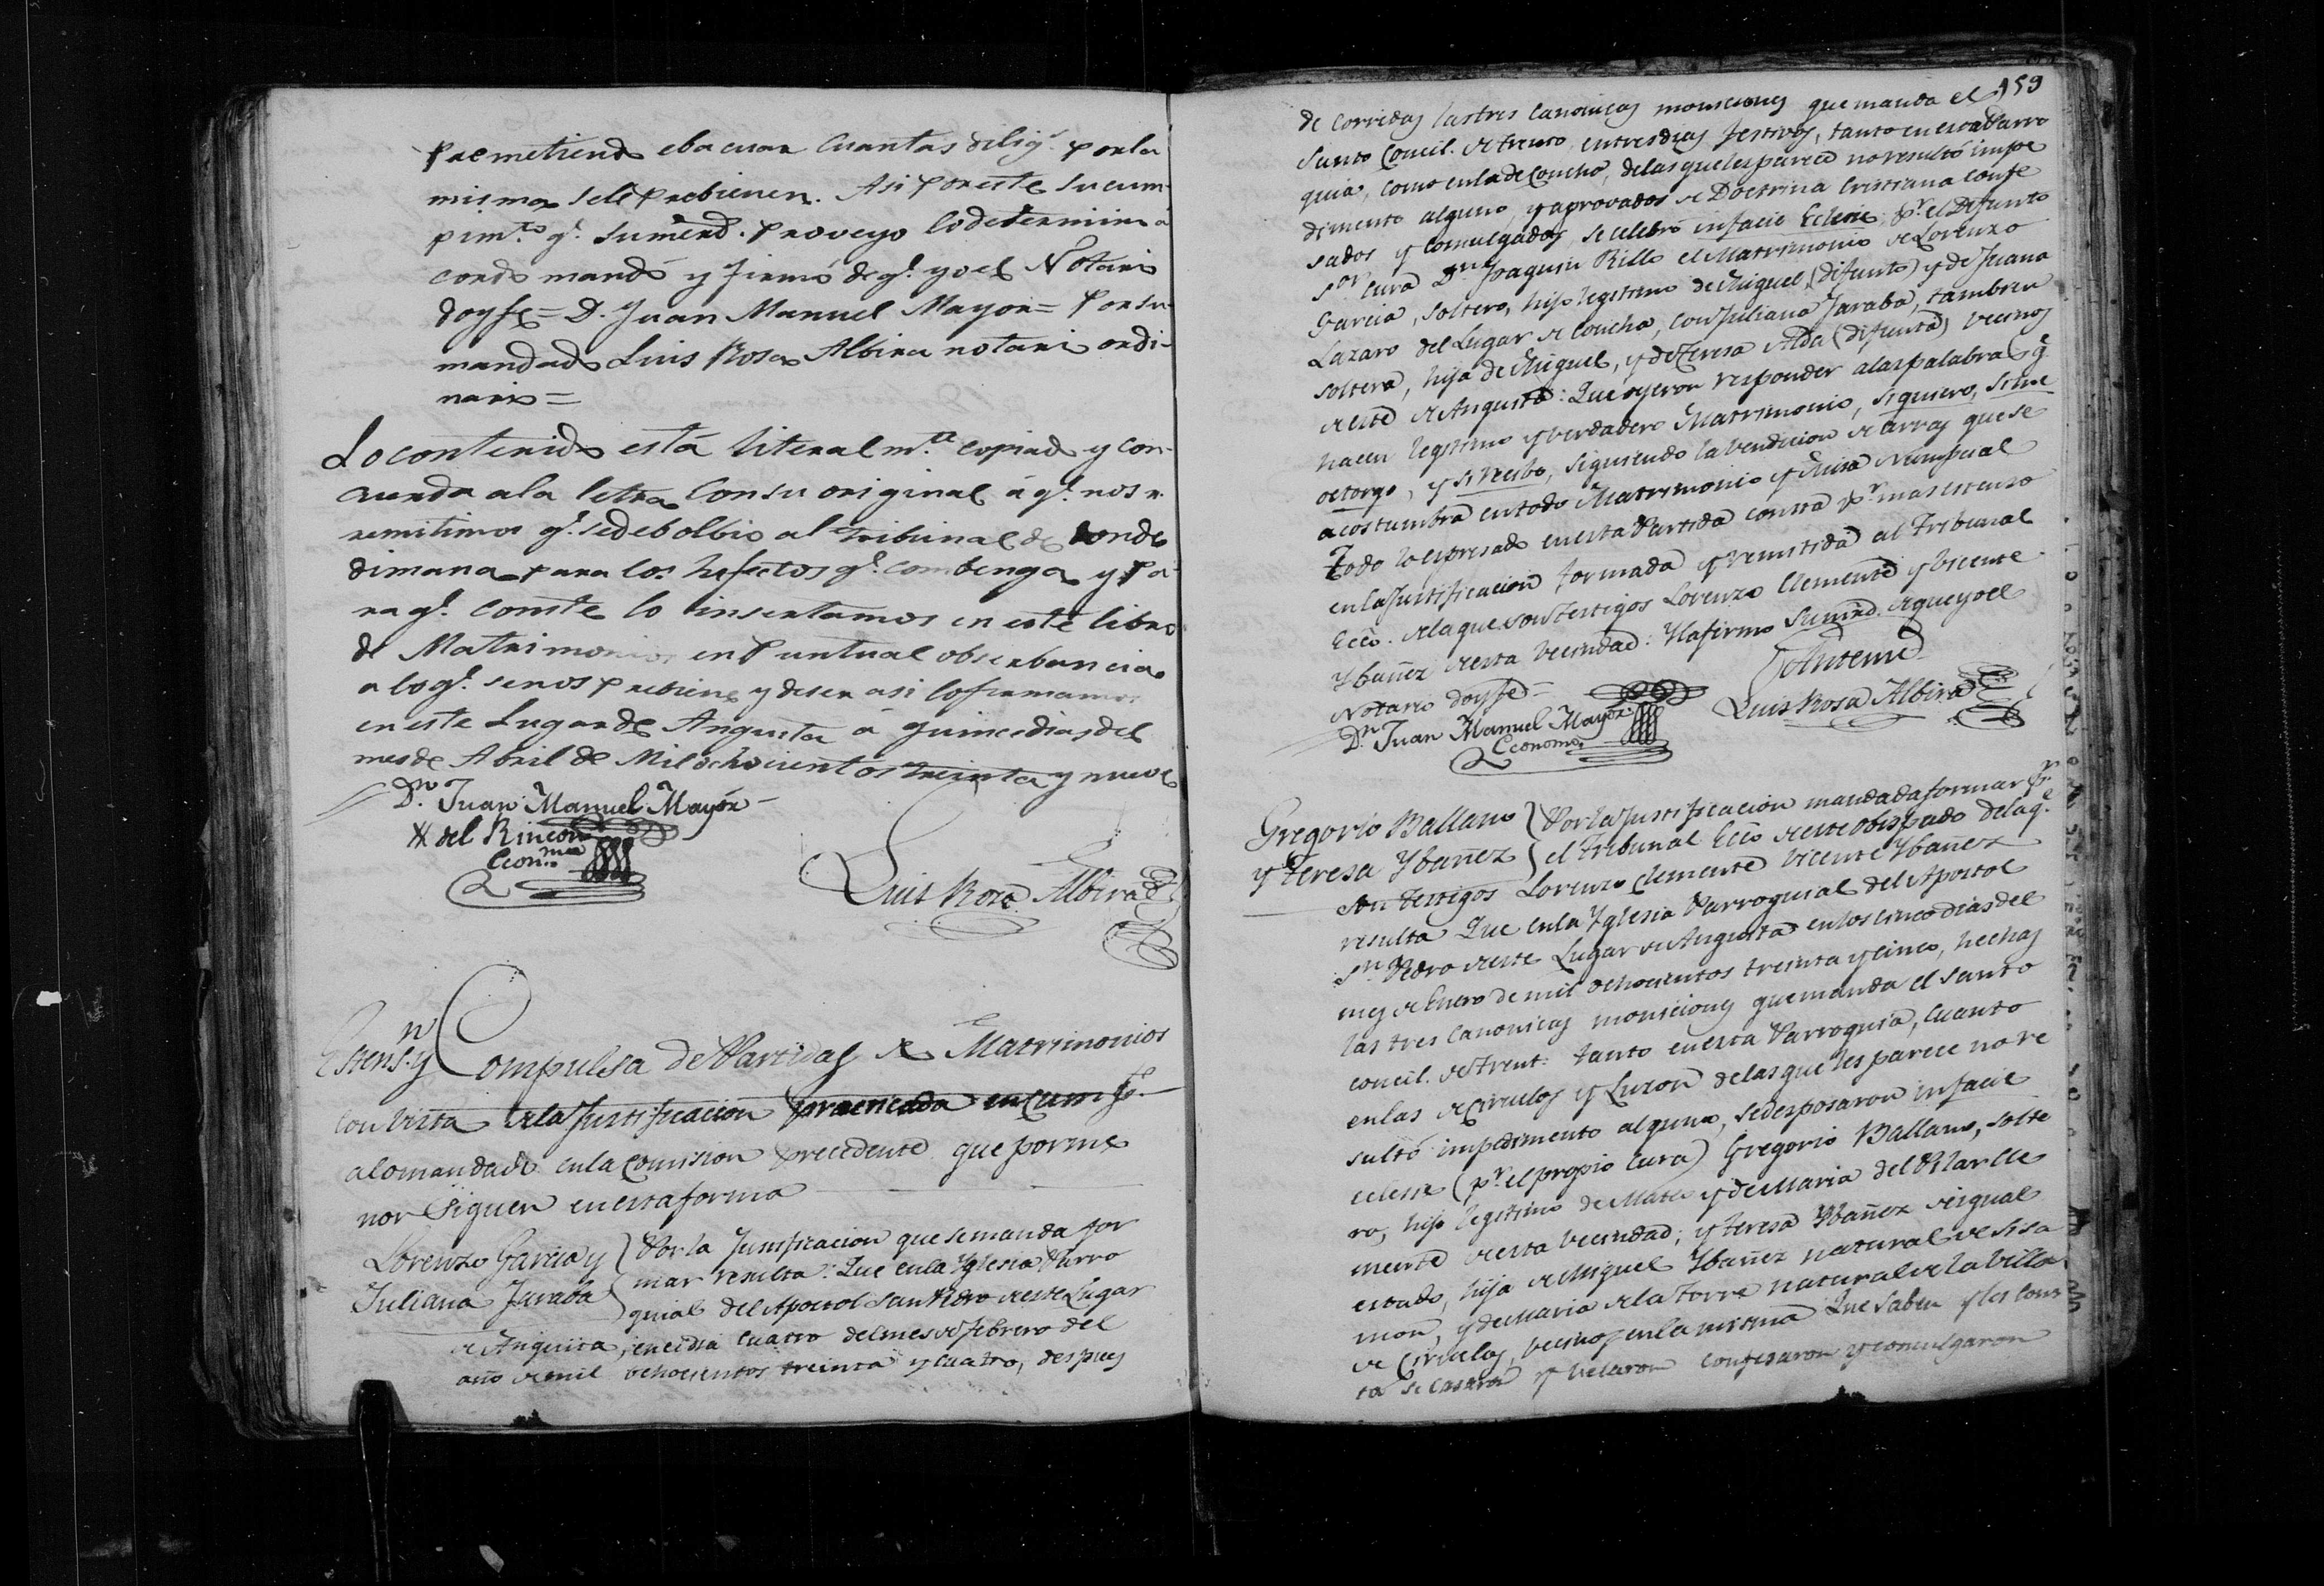 Prometiendo ebacuar cuantas dilig.s por la
misma se le prebienen. Asi por este su cum-
pim.to q.e su merd. proveyo lo determinó a
cordó mandó y firmó de q.e yo el Notario
doy fe = D. Juan Manuel Mayor = Por su
mandado Luis Rosa Albira notario ordi-
nario =
Lo contenido está literalm.te copiado y con-
cuerda a la letra con su original á q.e nos r.
remitimos q.e se debolbio al tribunal de donde
dimana para los hefectos q.e combenga y pa-
ra q.e conste lo insertamos en este libro
de Matrimonios en puntual obserbancia
a lo q.e se nos prebiene y de ser asi lo firmamos
en este Lugar de Anguita á quince dias del
mes de Abril de Mil ochocientos treinta y nueve
D.n Juan Manuel Mayor
del Rincon
Econ.mo
Luis Rosa Albira
Estens.n y Compulsa de Partidas de Matrimonios
con vista de la Justificacion practicada en cump.
a lo mandado en la comision precedente que por me
nor siguen en esta forma
Lorenzo Garcia y Por la Justificacion que se manda for
Juliana Jaraba mar resulta: Que en la Yglesia Parro
quial del Apostol San Pedro de este Lugar
de Anguita, en el dia cuatro del mes de Febrero del
año de mil ochocientos treinta y cuatro, despues
159
de corridas las tres canonicas moniciones que manda el
Santo Concil. de Trento, en tres dias festivos, tanto en esta Parro
quia, como en la de Concha, de las que les parece no resultó impe
dimento alguno, y aprovados de Doctrina Cristiana confe
sados y comulgados, se celebró infacie Eclesie, p.r el Difunto
S.or Cura D.n Joaquin Rillo el Matrimonio de Lorenzo
Garcia, soltero, hijo legitimo de Miguel (difunto) y de Juana
Lazaro del Lugar de Concha, con Juliana Jaraba, tambien
soltera, hija de Miguel, y de Teresa Alda (difunta) vecinos
de este de Anguita: Que oyeron responder a las palabras q.e
hacen legitimo y verdadero Matrimonio, si quiero, si me
otorgo, y si recibo, siguiendo la bendicion de arras que se
acostumbra en todo Matrimonio y Misa Numpcial
Todo lo espresado en esta Partida consta p.r mas estenso
en la Justificacion formada y remitida al Tribunal
Ecco. de la que son Testigos Lorenzo Clemente y Vicente
Ybañez de esta vecindad: Y la firmo su mrd. de que yo el
Notario doy fe =
D.n Juan Manuel Mayor
Economo
Ante mi
Luis Rosa Albira
Gregorio Ballano Por la Justificacion mandada formar p.r
y Teresa Ybañez el Tribunal Ecco de este obispado de la q.e
son Testigos Lorenzo Clemente Vicente Ybañez
resulta Que en la Yglesia Parroquial del Apostol
S.n Pedro de este Lugar de Anguita en los cinco dias del
mes de Enero de mil ochocientos treinta y cinco, hechas
las tres canonicas moniciones que manda el Santo
concil. de Trent: tanto en esta Parroquia, cuanto
en las de Ciruelos y Luzon de las que les parece no re
sultó impedimento alguno, se desposaron infacie
eclesie (p.r el propio Cura) Gregorio Ballano, solte
ro, hijo legitimo de Mateo y de Maria del Pilar Cle
mente de esta vecindad; y Teresa Ybañez de igual
estado, hija de Miguel Ybañez natural de Sisa
mon, y de Maria de la Torre natural de la Villa
de Ciruelos, vecinos en la misma Que saben y les cons
ta se casaron y velaron confesaron y comulgaron